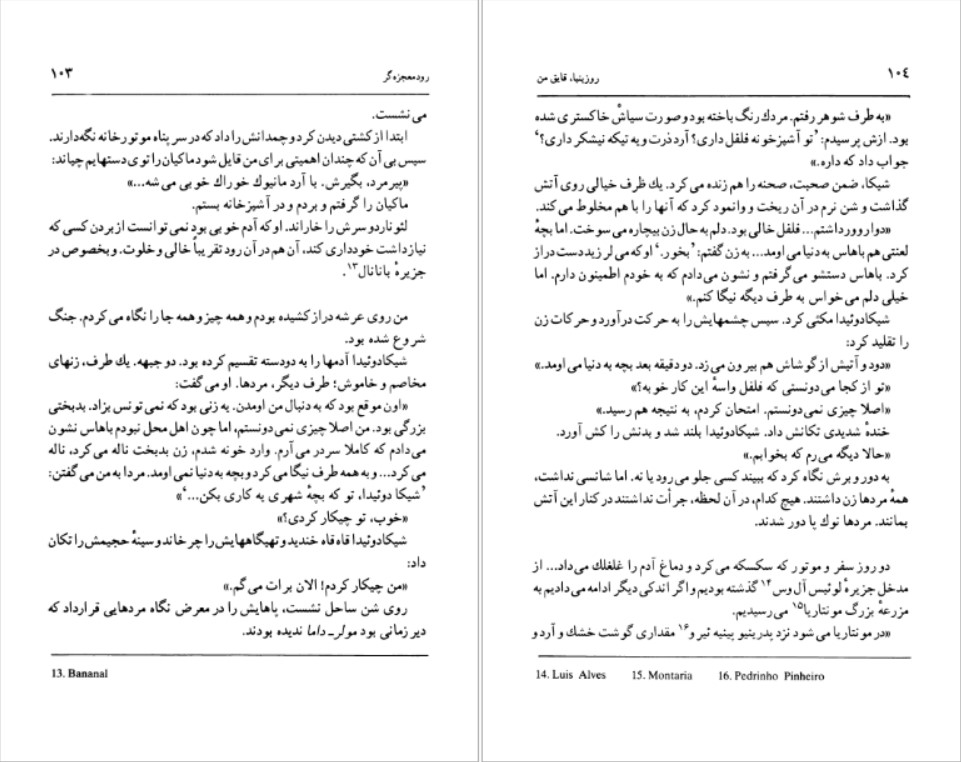 رودمعجزه‌گر
۱۰۳
می نشست.
ابتدا از کشتی دیدن کرد و چمدانش را داد که در سر پناه موتورخانه نگه‌دارند.
سپس بی آن که چندان اهمیتی برای من قایل شود ماکیان را توی دستهایم چپاند:
«پیرمرد، بگیرش. با آرد مانیوك خوراك خوبی می شه...»
ماکیان را گرفتم و بردم و در آشپزخانه بستم.
لئوناردو سرش را خاراند. او که آدم خوبی بود نمی توانست از بردن کسی که
نیاز داشت خودداری کند، آن هم در آن رود تقریباً خالی و خلوت. و بخصوص در
جزیرهٔ بانانال۱۳.
من روی عرشه دراز کشیده بودم و همه چیز و همه جا را نگاه می کردم. جنگ
شروع شده بود.
شیکادوئیدا آدمها را به دودسته تقسیم کرده بود. دو جبهه. یك طرف، زنهای
مخاصم و خاموش؛ طرف دیگر، مردها. او می گفت:
«اون موقع بود که به دنبال من اومدن. یه زنی بود که نمی تونس بزاد. بدبختی
بزرگی بود. من اصلا چیزی نمی دونستم، اما چون اهل محل نبودم باهاس نشون
می‌دادم که کاملا سردر می آرم. وارد خونه شدم، زن بدبخت ناله می کرد، ناله
می کرد... و به همه طرف نیگا می کرد و بچه به دنیا نمی اومد. مردا به من می گفتن:
’شیکا دوئیدا، تو که بچهٔ شهری یه کاری بکن...‘»
«خوب، تو چیکار کردی؟»
شیکادوئیدا قاه قاه خندید و تهیگاههایش را چرخاند و سینهٔ حجیمش را تکان
داد:
«من چیکار کردم! الان برات می گم.»
روی شن ساحل نشست، پاهایش را در معرض نگاه مردهایی قرارداد که
دیر زمانی بود مولر ـ داما ندیده بودند.
13. Bananal
۱۰۴
روزینیا، قایق من
«به طرف شوهر رفتم. مردك رنگ باخته بود و صورت سیاش خاکستری شده
بود. ازش پرسیدم: ’تو آشپزخونه فلفل داری؟ آرد ذرت و یه تیکه نیشکر داری؟‘
جواب داد که داره.»
شیکا، ضمن صحبت، صحنه را هم زنده می کرد. یك ظرف خیالی روی آتش
گذاشت و شن نرم در آن ریخت و وانمود کرد که آنها را با هم مخلوط می کند.
«دوا روورداشتم... فلفل خالی بود. دلم به حال زن بیچاره می سوخت. اما بچهٔ
لعنتی هم باهاس به دنیا می اومد... به زن گفتم: ’بخور.‘ او که می لرزید دست دراز
کرد. باهاس دستشو می گرفتم و نشون می‌دادم که به خودم اطمینون دارم. اما
خیلی دلم می خواس به طرف دیگه نیگا کنم.»
شیکادوئیدا مکثی کرد. سپس چشمهایش را به حرکت درآورد و حرکات زن
را تقلید کرد:
«دود و آتیش از گوشاش هم بیرون می زد. دو دقیقه بعد بچه به دنیا می اومد.»
«تو از کجا می دونستی که فلفل واسهٔ این کار خوبه؟»
«اصلا چیزی نمی دونستم. امتحان کردم، به نتیجه هم رسید.»
خندهٔ شدیدی تکانش داد. شیکادوئیدا بلند شد و بدنش را کش آورد.
«حالا دیگه می رم که بخوابم.»
به دور و برش نگاه کرد که ببیند کسی جلو می رود یا نه. اما شانسی نداشت،
همهٔ مردها زن داشتند. هیچ کدام، در آن لحظه، جرأت نداشتند در کنار این آتش
بمانند. مردها نوك پا دور شدند.
دو روز سفر و موتور که سکسکه می کرد و دماغ آدم را غلغلك می‌داد... از
مدخل جزیرهٔ لوئیس آل وس۱۴ گذشته بودیم و اگر اندکی دیگر ادامه می دادیم به
مزرعهٔ بزرگ مونتاریا۱۵ می رسیدیم.
«در مونتاریا می شود نزد پدرینیو پینیه ئیرو۱۶ مقداری گوشت خشك و آرد و
14. Luis Alves 15. Montaria 16. Pedrinho Pinheiro